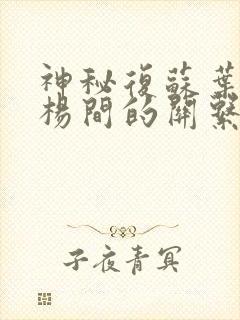 神秘復蘇葉
楊間的關繫
子夜青冥